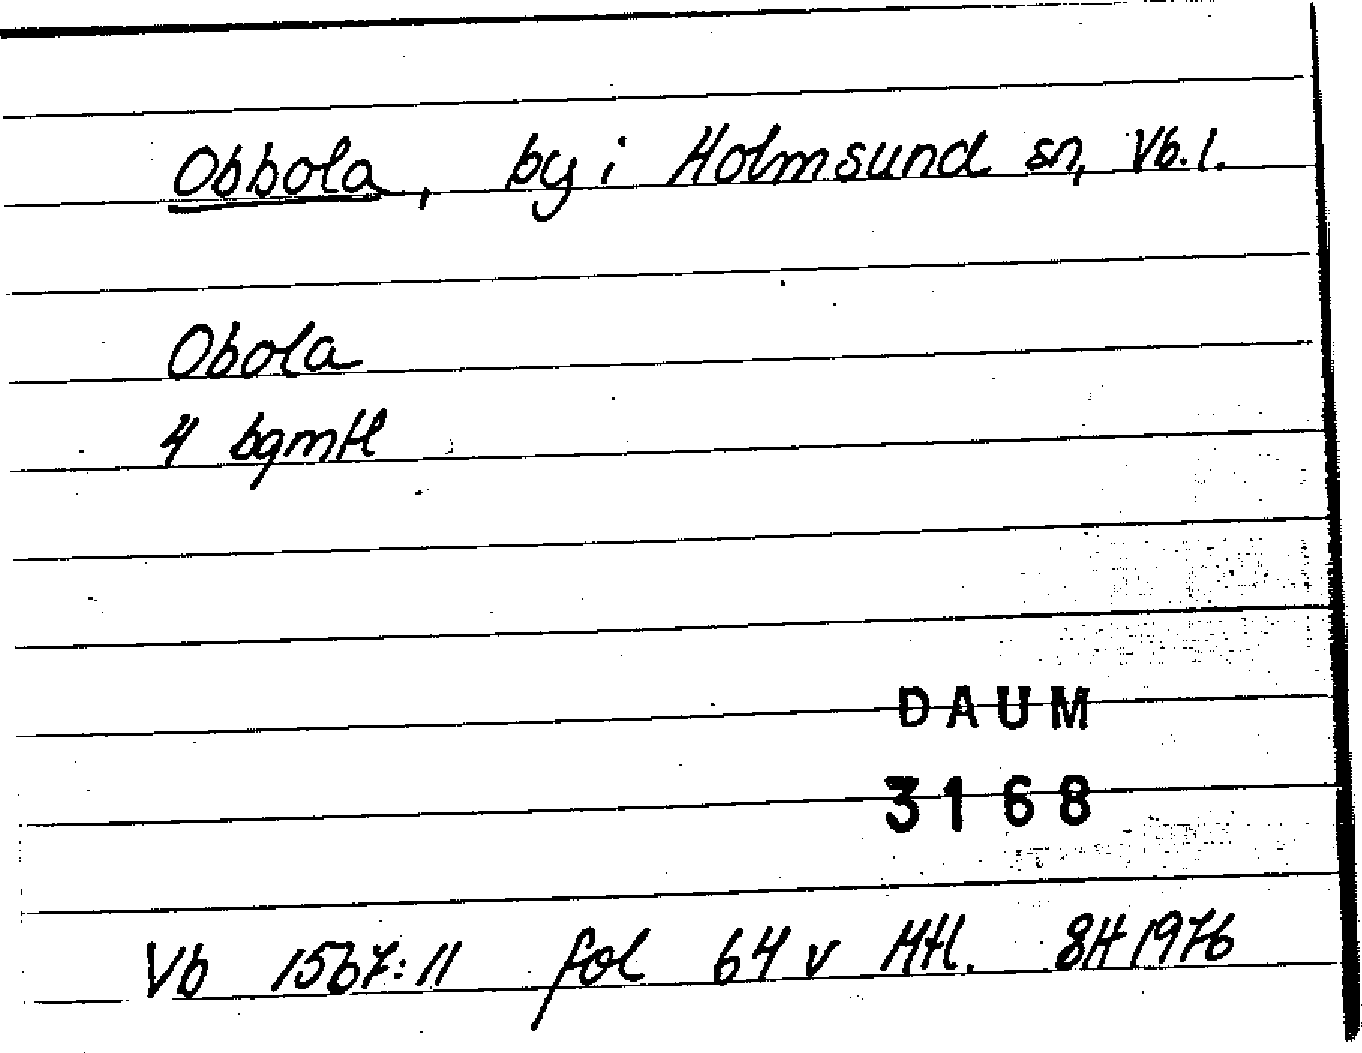 Obbola, by i Holmsund sn, Vb. l.
Obola
4 bgmtl
DAUM
3168
Vb 1567:11 fol 64 v Mtl. SH 1976